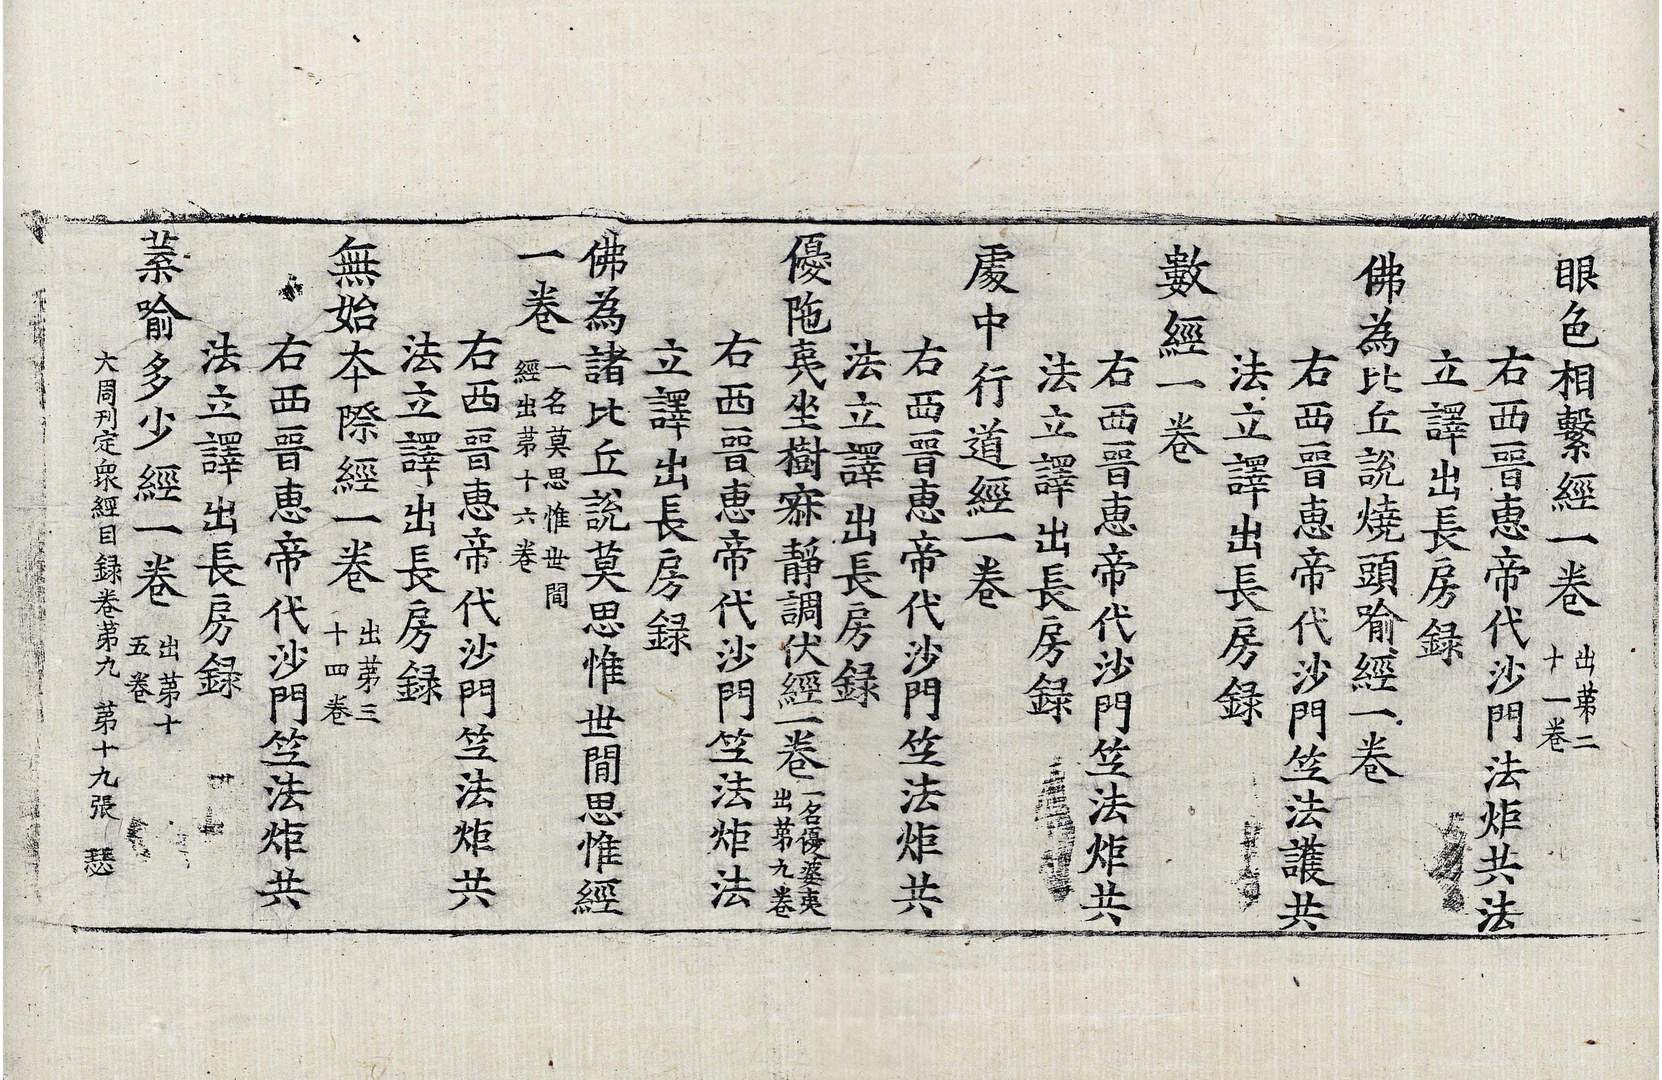 眼色相繫經一卷 出苐二十一卷
右西晉惠帝代沙門法炬共法
立譯出長房録
佛為比丘說燒頭喻經一卷
右西晉惠帝代沙門竺法護共
法立譯出長房録
數經一卷
右西晉惠帝代沙門竺法炬共
法立譯出長房録
處中行道經一卷
右西晉惠帝代沙門竺法炬共
法立譯出長房録
優陁夷坐樹寂靜調伏經一卷 一名優婆夷出苐九卷
右西晉惠帝代沙門竺法炬法
立譯出長房録
佛為諸比丘說莫思惟世間思惟經
一卷 一名莫思惟世間經出苐十六卷
右西晉惠帝代沙門竺法炬共
法立譯出長房録
無始本際經一卷 出苐三十四卷
右西晉惠帝代沙門竺法炬共
法立譯出長房録
葉喻多少經一卷 出苐十五卷
大周刊定衆經目録卷苐九 第十九張 瑟